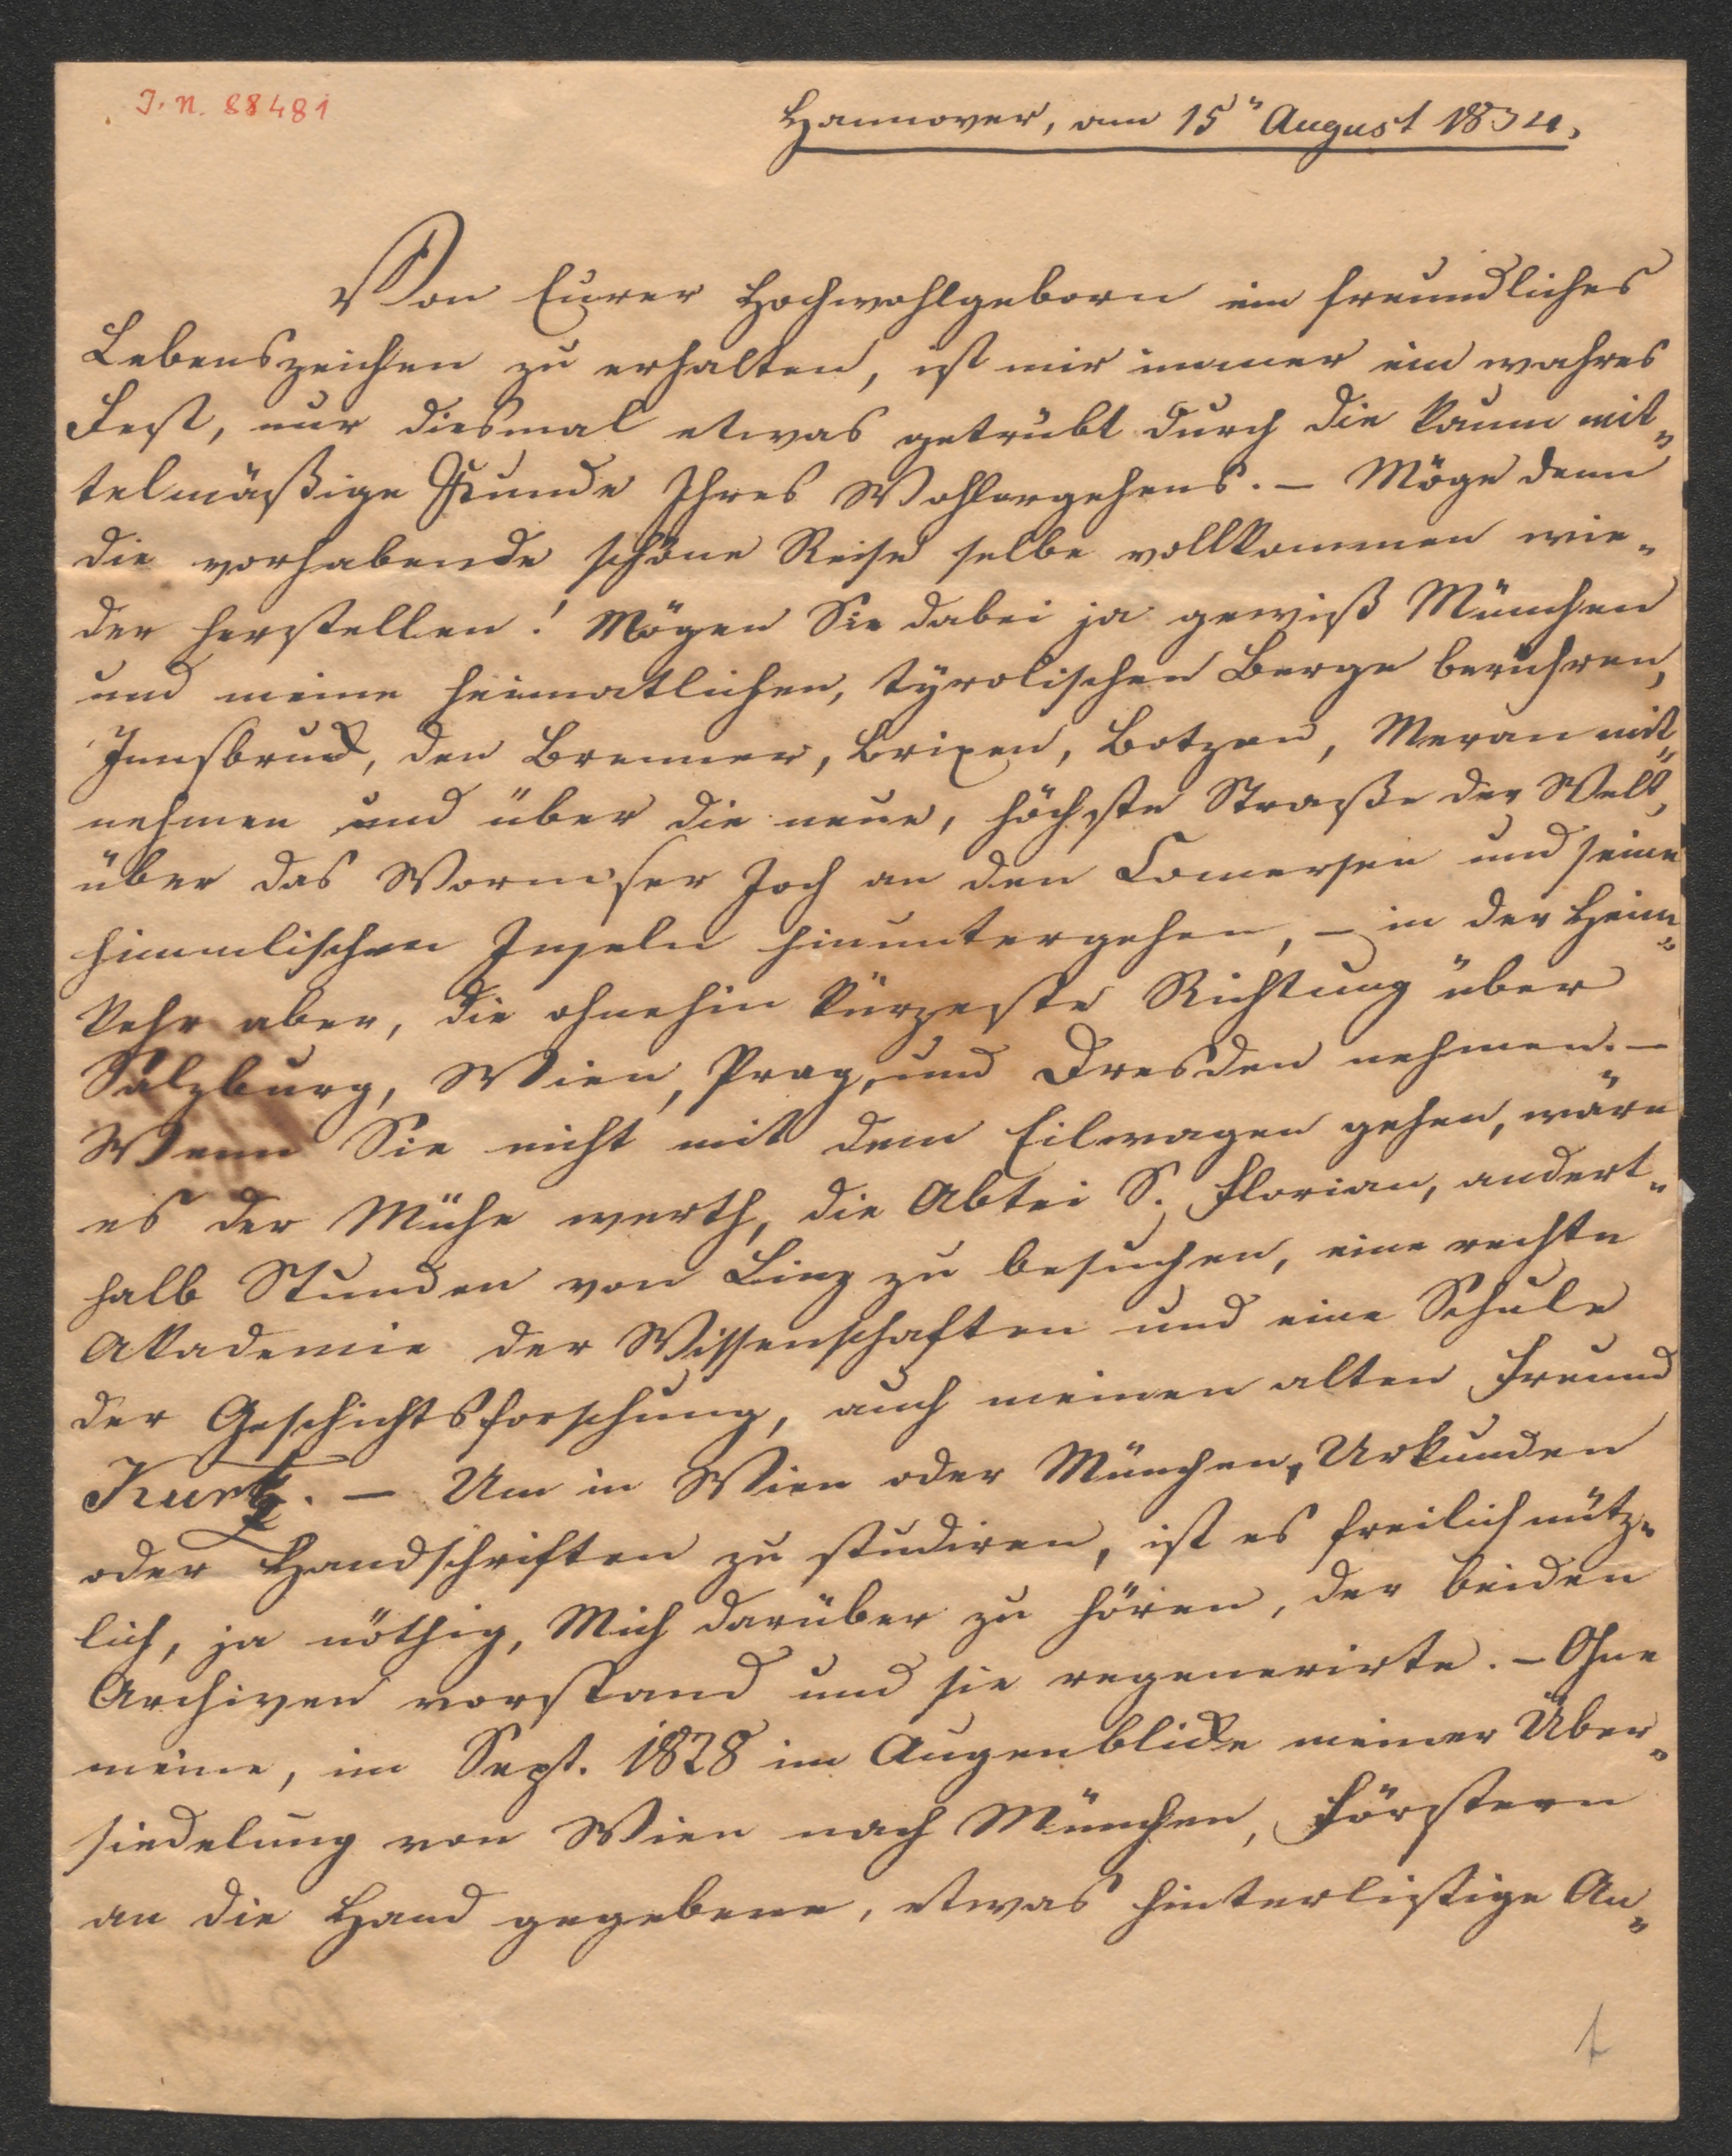 I. N. 88481
Hannover, am 15n August 1834.
Von Eurer Hochwohlgeborn ein freundliches
Lebenszeichen zu erhalten, ist mir immer ein wahres
Fest, nur diesmal etwas getrübt durch die kaum mit„
telmäßige Kunde Ihres Wohlergehens. – Möge denn
die vorhabende schöne Reise selbe vollkommen wie„
der herstellen! Mögen Sie dabei ja gewiß München
und meine heimatlichen, tyrolischen Berge berühren,
Innsbruck, den Brenner, Brixen, Botzen, Meran mit„
nehmen und über die neue, höchste Straße der Welt,
über das Wormser Joch an den Comersee und seine
himmlischen Inseln hinuntergehen, – in der Heim„
kehr aber, die ohnehin kürzeste Richtung über
Salzburg, Wien, Prag, und Dresden nehmen. –
Wenn Sie nicht mit dem Eilwagen gehen, wäre
es der Mühe werth, die Abtei S. Florian, andert„
halb Stunden von Linz zu besuchen, eine rechte
Akademie der Wissenschaften und eine Schule
der Geschichtsforschung, auch meinen alten Freund
Kurtz. – Um in Wien oder München, Urkunden
oder Handschriften zu studiren, ist es freilich nütz„
lich, ja nöthig, Mich darüber zu hören, der beiden
Archiven vorstand und sie regenerirte. – Ohne
meine, im Sept. 1828 im Augenblicke meiner Über„
siedelung von Wien nach München, Förstern
an die Hand gegebene, etwas hinterlistige An„
1